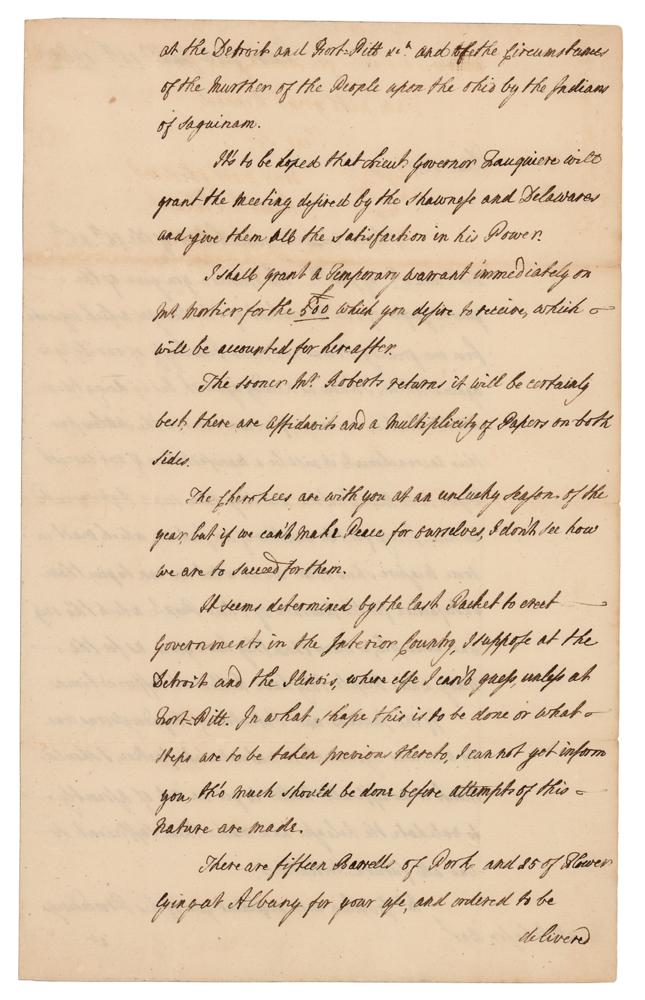 at the Detroit and Fort-Pitt &ca and of the Circumstances
of the Murther of the People upon the ohio by the Indians
of Saguinam.
It's to be hoped that Lieut. Governor Fauquiere will
grant the Meeting desired by the Shawnese and Delawares
and give them all the Satisfaction in his Power.
I shall grant a Temporary Warrant immediately on
Mr. Mortier for the £500 which you desire to receive, which
will be accounted for hereafter.
The sooner Mr. Roberts returns it will be certainly
best, there are affidavits and a Multiplicity of Papers on both
sides.
The Cherokees are with you at an unlucky Season of the
year, but if we can't make Peace for ourselves, I don't see how
we are to succeed for them.
It seems determined by the last Packet to erect
Governments in the Interior Country, I suppose at the
Detroit and the Ilinois, where else I can't guess, unless at
Fort-Pitt. In what shape this is to be done or what
steps are to be taken previous thereto, I can not yet inform
you, tho' much should be done before attempts of this
Nature are made.
There are fifteen Barrells of Pork and 25 of Flower
lying at Albany for your use, and ordered to be
delivered